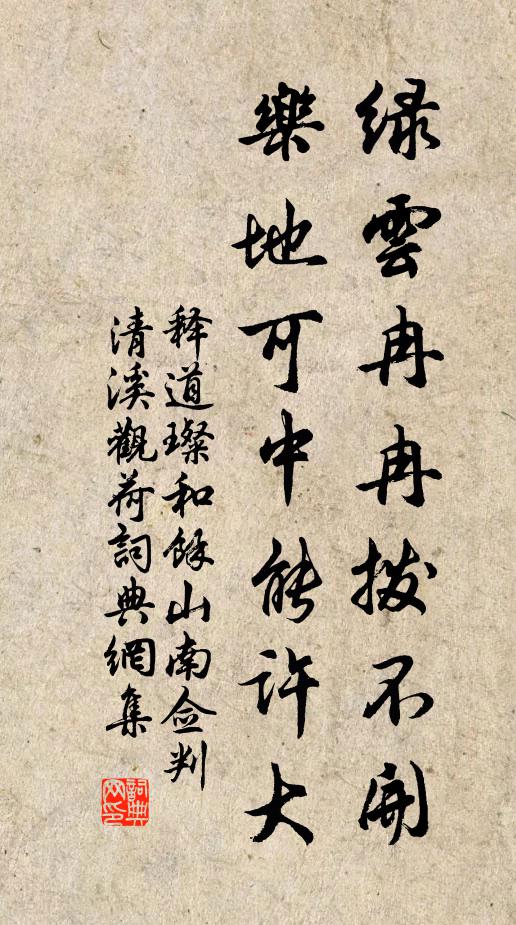 绿雲冉冉拨不開
樂地可中能许大
释道璨和餘山南佥判
清溪觀荷詞典網集
詞典
网印